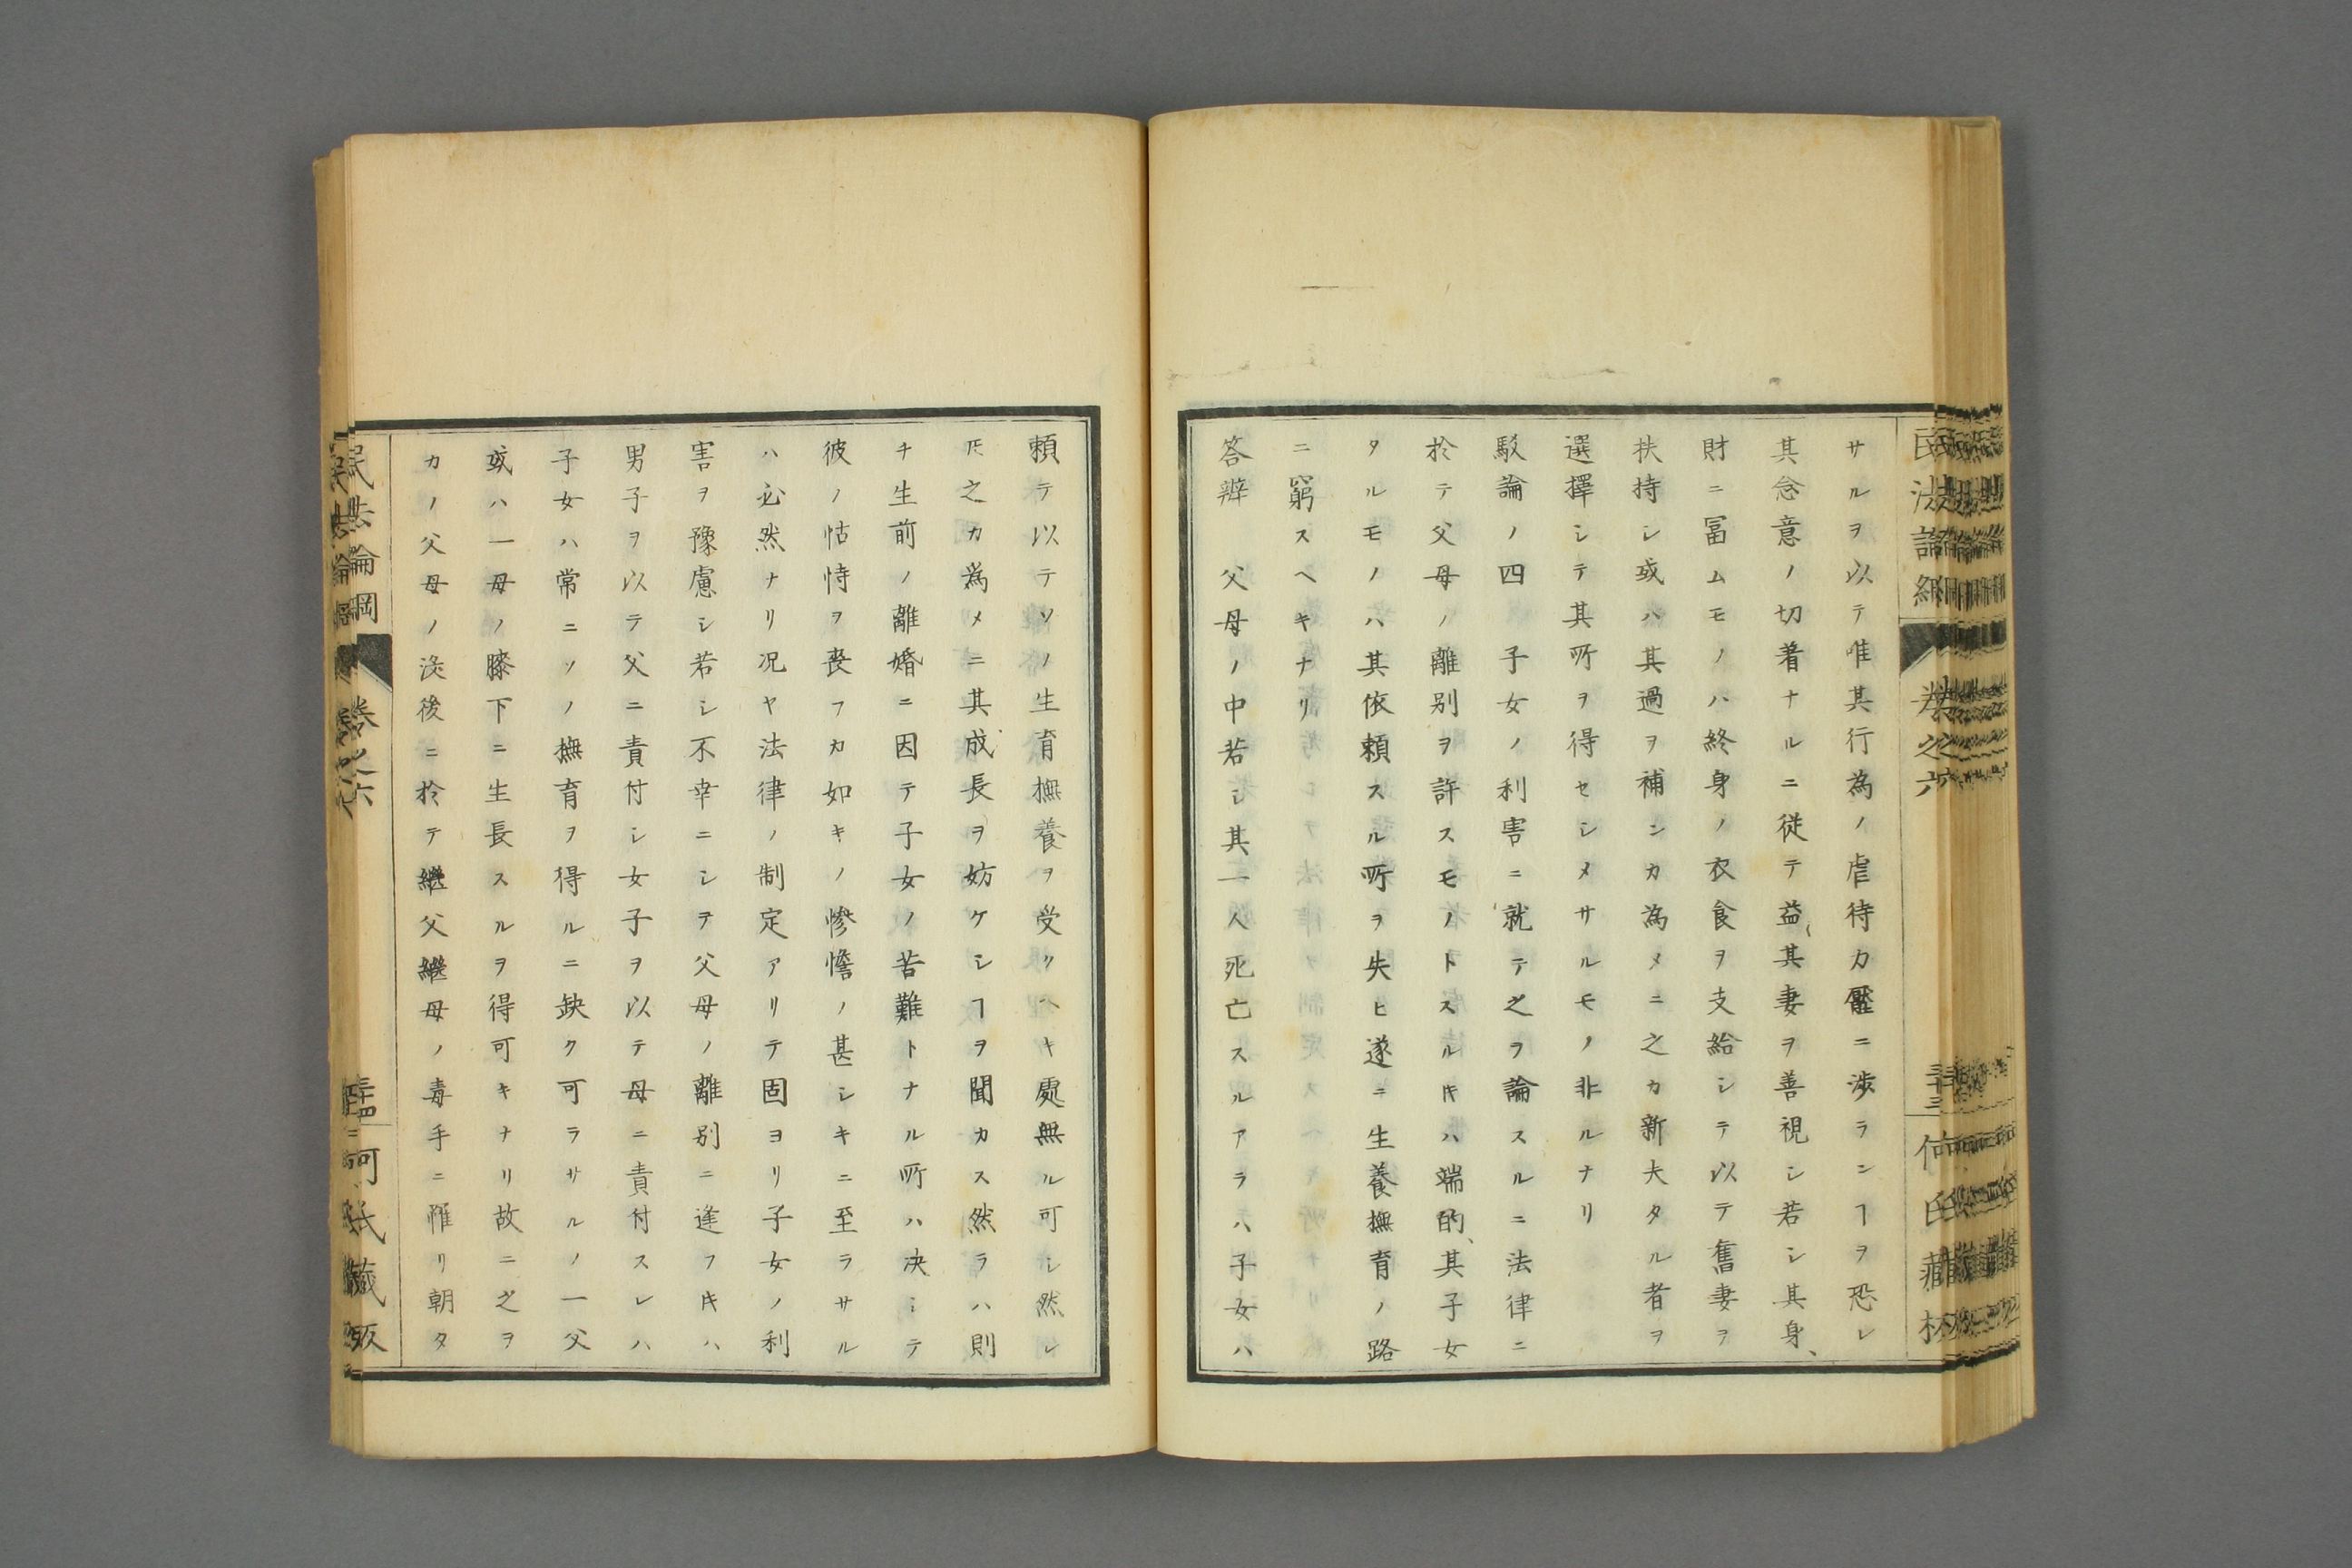 サルヲ以テ唯其行為ノ虐待カ壓ニ渉ランヿヲ恐レ
其念意ノ切着ナルニ従テ益其妻ヲ善視シ若シ其身、
財ニ冨ムモノハ終身ノ衣食ヲ支給シテ以テ舊妻ヲ
扶持シ或ハ其過ヲ補ンカ為メニ之カ新夫タル者ヲ
選擇シテ其所ヲ得セシメサルモノ非ルナリ
駁論ノ四　子女ノ利害ニ就テ之ヲ論スルニ法律ニ
於テ父母ノ離別ヲ許スモノトスルキハ端的、其子女
タルモノハ其依頼スル所ヲ失ヒ遂ニ生養撫育ノ路
ニ窮スヘキナリ
答辨　父母ノ中若シ其一人死亡スルアラハ子女ハ
頼テ以テソノ生育撫養ヲ受クヘキ處無ル可シ然レ
𪜈之カ為メニ其成長ヲ妨ケシヿヲ聞カス然ラハ則
チ生前ノ離婚ニ因テ子女ノ苦難トナル所ハ决シテ
彼ノ怙恃ヲ喪フカ如キノ慘憺ノ甚シキニ至ラサル
ハ必然ナリ况ヤ法律ノ制定アリテ固ヨリ子女ノ利
害ヲ豫慮シ若シ不幸ニシテ父母ノ離別ニ逢フキハ
男子ヲ以テ父ニ責付シ女子ヲ以テ母ニ責付スレハ
子女ハ常ニソノ撫育ヲ得ルニ缺ク可ラサルノ一父
或ハ一母ノ膝下ニ生長スルヲ得可キナリ故ニ之ヲ
カノ父母ノ没後ニ於テ繼父繼母ノ毒手ニ罹リ朝タ
民法論綱
卷之六
三十四
何氏藏版